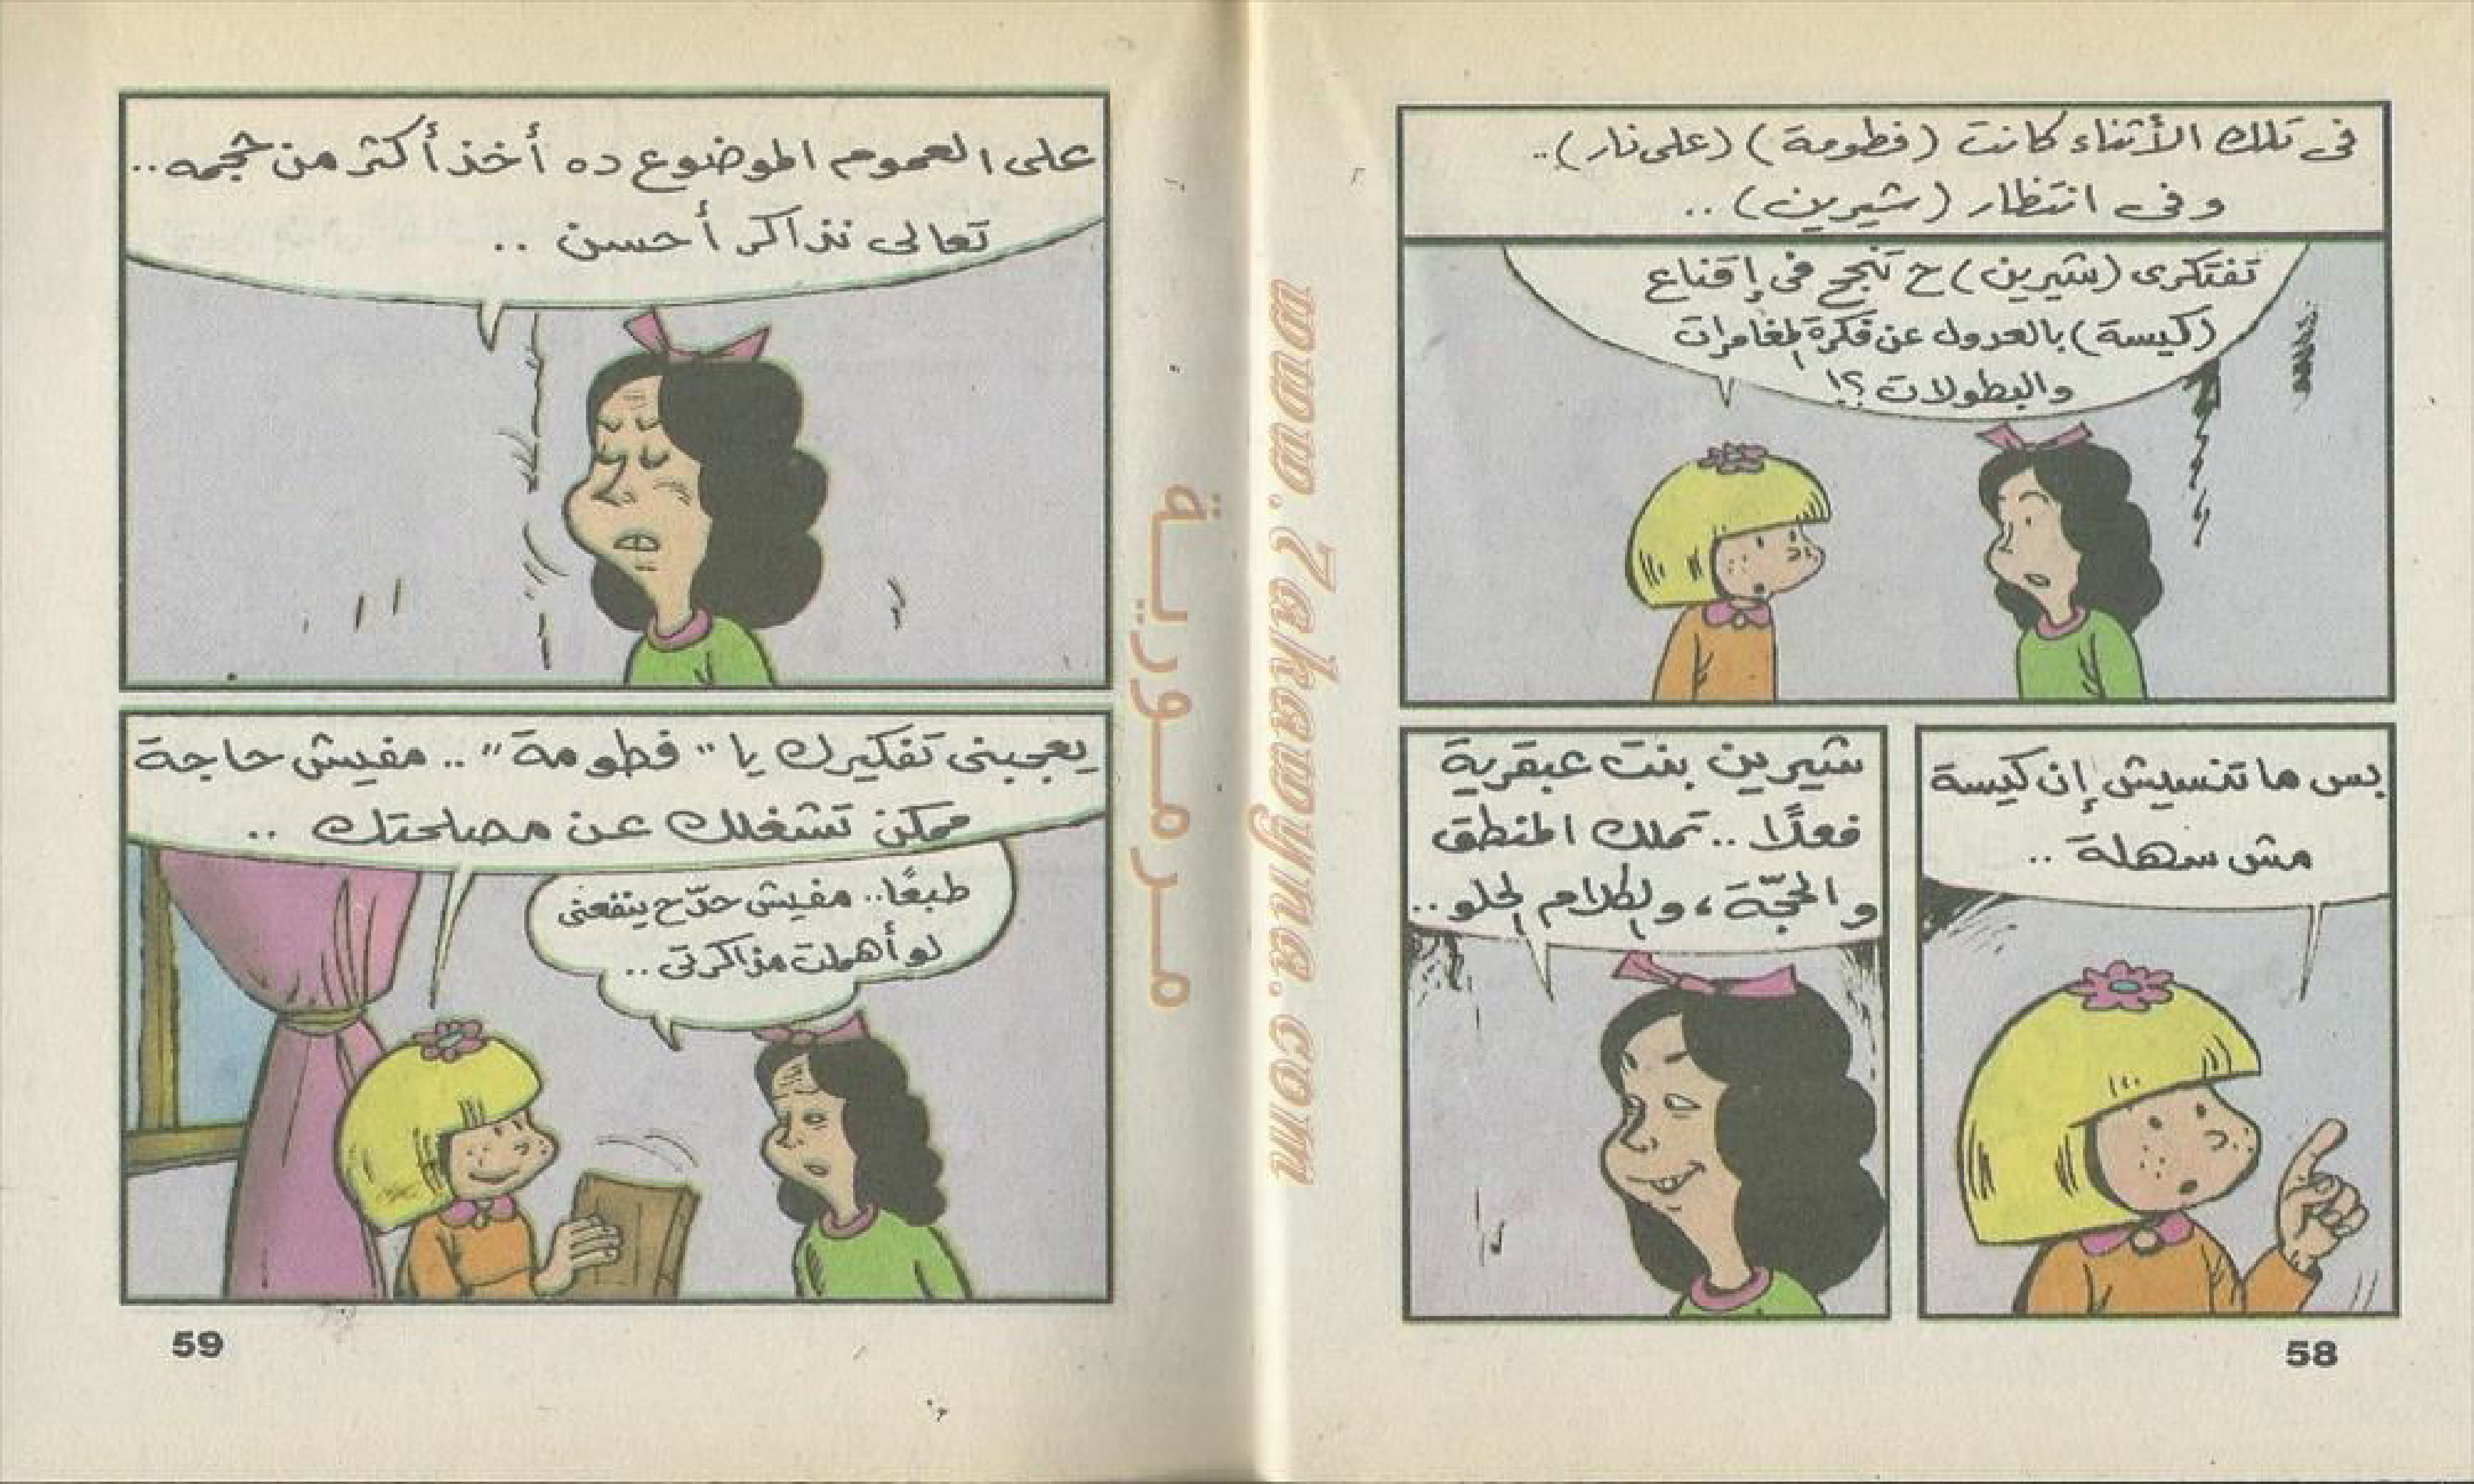 فى تلك الأثناء كانت (فطومة) (على نار)..
وفى انتظار (شيرين)..
تفتكرى (شيرين) ح تنجح فى إقناع
(كيسة) بالعدول عن فكرة المغامرات
والبطولات؟!
بس ما تنسيش إن كيسة
مش سهلة ..
شيرين بنت عبقرية
فعلًا .. تملك المنطق
والحجّة، والكلام الحلو ..
58
على العموم الموضوع ده أخذ أكثر من حجمه ..
تعالى نذاكر أحسن ..
يعجبنى تفكيرك يا "فطومة" .. مفيش حاجة
ممكن تشغلك عن مصلحتك ..
طبعًا.. مفيش حدّ ح ينفعنى
لو أهملت مذاكرتى ..
59
مرمورية
www.7akawyna.com